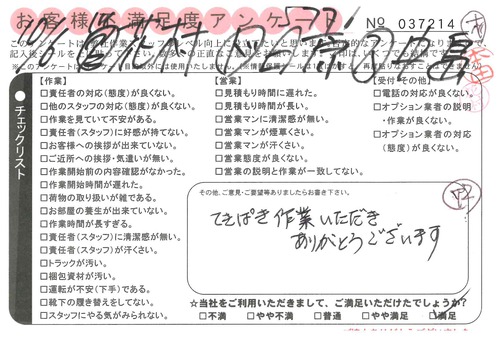 お客様不満足度アンケート
No 037214
【作業】
□責任者の対応(態度)が良くない。
□他のスタッフの対応(態度)が良くない。
□作業を見ていて不安がある。
□責任者(スタッフ)に好感が持てない。
□お客様への挨拶が出来ていない。
□ご近所への挨拶・気遣いが無い。
□作業開始前の内容確認がなかった。
□作業開始時間が遅れた。
□荷物の取り扱いが雑である。
□お部屋の養生が出来ていない。
□作業時間が長すぎる。
□責任者(スタッフ)に清潔感が無い。
□責任者(スタッフ)が汗くさい。
□トラックが汚い。
□梱包資材が汚い。
□運転が不安(下手)である。
□靴下の履き替えをしてない。
□スタッフにやる気がみられない。
【営業】
□見積もり時間に遅れた。
□見積もり時間が長い。
□営業マンに清潔感が無い。
□営業マンが煙草くさい。
□営業マンが汗くさい。
□営業態度が良くない。
□営業の説明と作業が一致してない。
【受付・その他】
□電話の対応が良くない。
□オプション業者の説明
・作業が良くない。
□オプション業者の対応
(態度)が良くない。
●チェックリスト
その他、ご意見・ご要望等ありましたらお書き下さい。
てきぱき作業いただき
ありがとうございます
☆当社をご利用いただきまして、ご満足いただけたでしょうか?
□不満 □やや不満 □普通 □やや満足 □満足